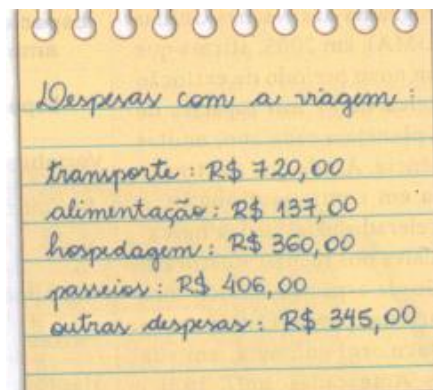 Despesas com a viagem:
transporte: R$ 720,00
alimentação: R$ 137,00
hospedagem: R$ 360,00
passeios: R$ 406,00
outras despesas: R$ 345,00